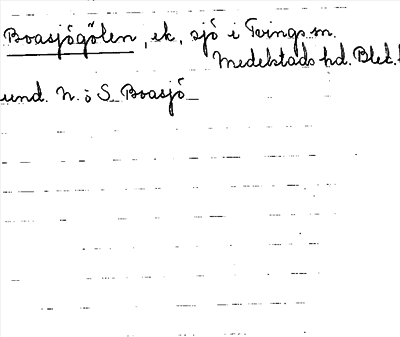 Boasjögölen, ek, sjö i Tvings sn.
Medelstads hd. Blek.
und. N. o S. Boasjö